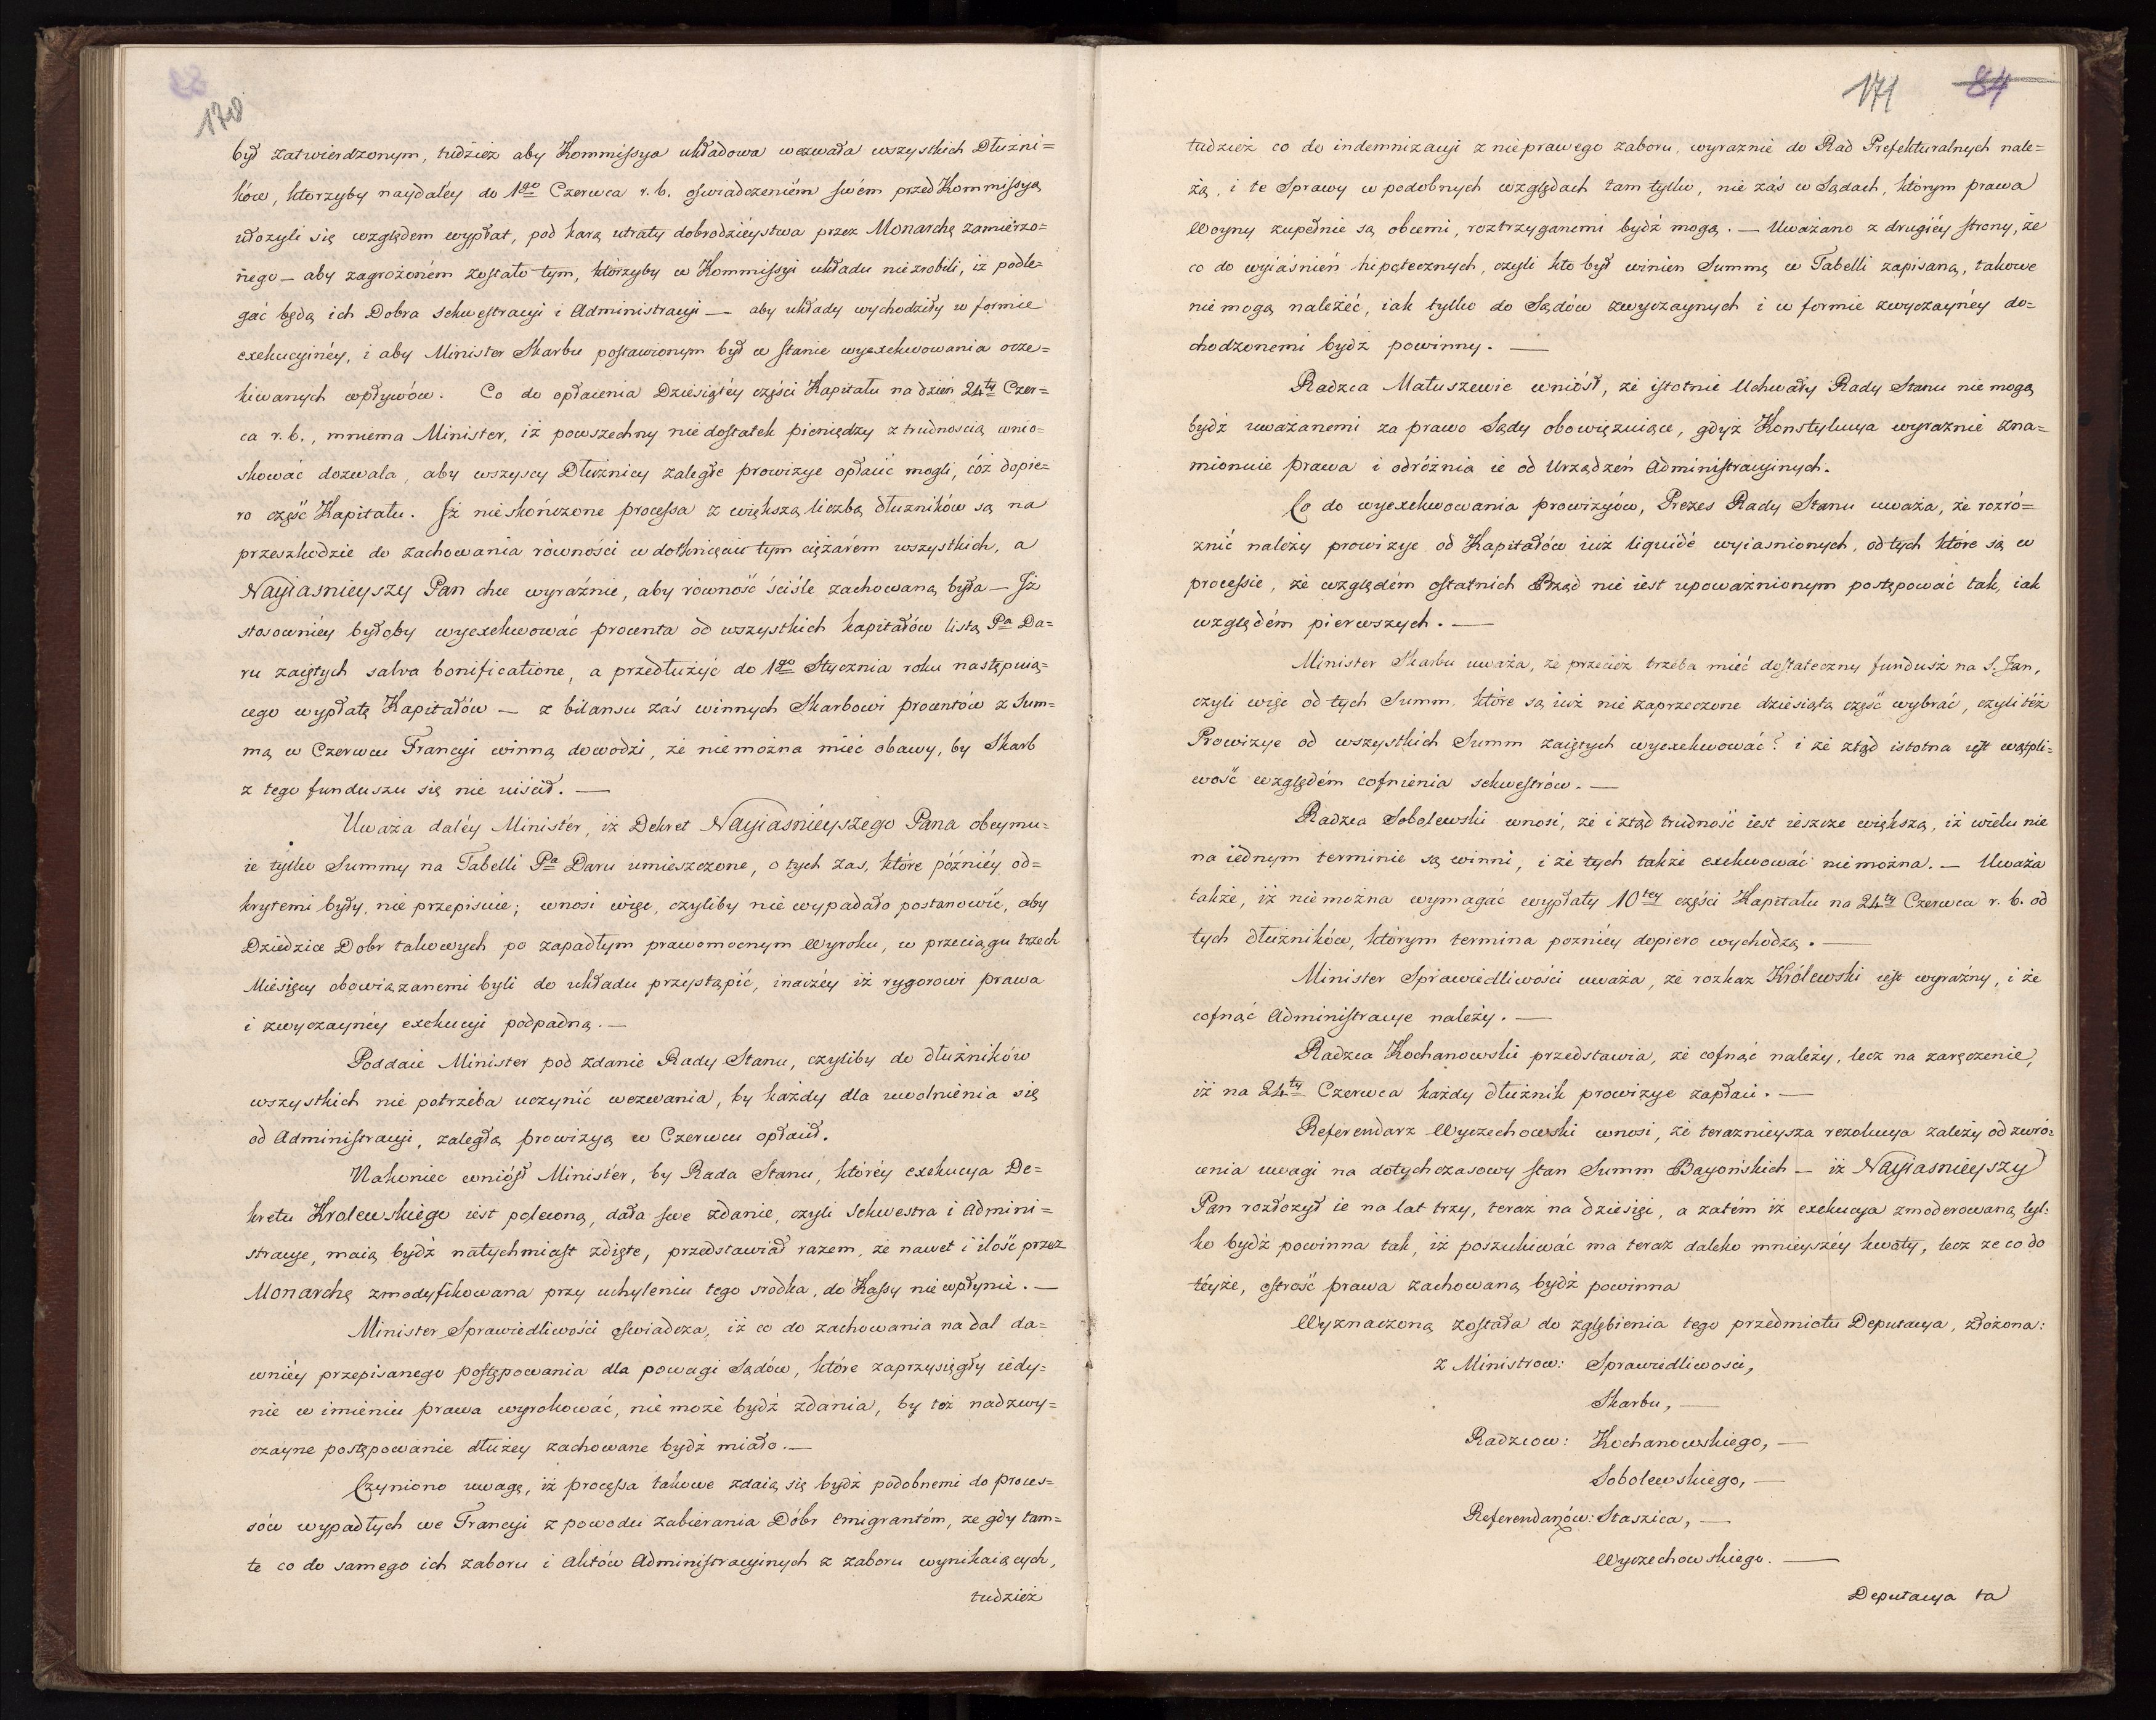 170
był zatwierdzonym, tudzież aby Kommissya układowa wezwała wszystkich Dłużni=
ków, ktorzyby naydaléy do 1go Czerwca r. b. oswiadczeniém swém przed Kommissyą
ułozyli się względem wypłat, pod karą utraty dobrodziéystwa przez Monarchę zamierzo=
nego — aby zagrożoném zostało tym, którzyby w Kommissyi układu niezrobili, iż podle=
gać będą ich Dobra sekwestracyi i Administracyi — aby układy wychodziły w formie
exekucyinéy, i aby Minister Skarbu postawionym był w stanie wyexekwowania ocze=
kiwanych wpływów. Co do opłacenia Dziesiątéy części Kapitału na dzień 24ty Czer=
ca r. b., mniema Minister, iż powszechny niedostatek pieniędzy z trudnoscią wnio=
skować dozwala, aby wszyscy Dłużnicy zaległe prowizye opłacić mogli, cóż dopie=
ro część Kapitału. Iż nieskończone processa z większą liczbą dłużników są na
przeszkodzie do zachowania równości w dotknięciu tym ciężarem wszystkich, a
Nayiasnieyszy Pan chce wyraźnie, aby równość ściśle zachowaną była — Iż
stosowniéy byłoby wyexekwować procenta od wszystkich kapitałów listą Pa Da=
ru zaiętych salva bonificatione, a przedłużyć do 1go Stycznia roku następuią=
cego wypłatę Kapitałów — z bilansu zaś winnych Skarbowi procentów z Sum=
mą w Czerwcu Francyi winną dowodzi, że niemożna mieć obawy, by Skarb
z tego funduszu się nie uiścił. —
Uważa daléy Minister, iż Dekret Nayiaśnieyszego Pana obeymu=
ie tylko Summy na Tabelli Pa Daru umieszczone, o tych zas, które późniéy od=
krytemi były, nie przepisuie; wnosi więc, czyliby nie wypadało postanowić, aby
Dziedzice Dobr takowych po zapadłym prawomocnym Wyroku, w przeciągu trzech
Miesięcy obowiązanemi byli do układu przystąpić, inaczéy iż rygorowi prawa
i zwyczaynéy exekucyi podpadną. —
Poddaie Minister pod zdanie Rady Stanu, czyliby do dłużników
wszystkich nie potrzeba uczynić wezwania, by każdy dla uwolnienia się
od Administracyi, zaległą prowizyą w Czerwcu opłacił.
Nakoniec wniósł Minister, by Rada Stanu, któréy exekucya De=
kretu Krolewskiego iest poleconą, dała swe zdanie, czyli Sekwestra i Admini=
stracye, maią bydź natychmiast zdięte, przedstawiał razem, że nawet i ilość przez
Monarchę zmodyfikowana przy uchyleniu tego srodka, do Kassy nie wpłynie. —
Minister Sprawiedliwości oswiadcza, iż co do zachowania nadal da=
wniéy przepisanego postępowania dla powagi Sądów, które zaprzysięgły iedy=
nie w imieniu prawa wyrokować, nie może bydź zdania, by toż nadzwy=
czayne postępowanie dłużey zachowane bydź miało. —
Czyniono uwagę, iż processa takowe zdaią się bydź podobnemi do proces=
sów wypadłych we Francyi z powodu zabierania Dóbr Emigrantóm, że gdy tam=
te co do samego ich zaboru i Aktów Administracyinych z zaboru wynikaiących,
tudzież
171 84
tudzież co do indemnizacyi z nieprawego zaboru, wyraznie do Rad Prefekturalnych nale=
żą, i te Sprawy w podobnych względach tam tylko, nie zaś w Sądach, którym prawa
Woyny zupełnie są obcemi, roztrzyganemi bydź mogą. — Uważano z drugiéy strony, że
co do wyiaśnień hipotecznych, czyli kto był winien Summę w Tabelli zapisaną, takowe
nie mogą należéć, iak tylko do Sądów zwyczaynych i w formie zwyczaynéy do=
chodzonemi bydź powinny. —
Radzca Matuszewic wniósł, że istotnie Uchwały Rady Stanu nie mogą
bydź uważanemi za prawo Sądy obowięzuiące, gdyż Konstytucya wyraznie zna=
mionuie prawa i odróżnia ie od Urządzeń Administracyinych.
Co do wyexekwowania prowizyów, Prezes Rady Stanu uważa, że rozró=
znić należy prowizye od Kapitałów iuż liquidé wyiasnionych, od tych które są w
processie, że względém ostatnich Rząd nie iest upoważnionym postępować tak, iak
względém pierwszych. —
Minister Skarbu uważa, że przecież trzeba mieć dostateczny fundusz na S. Jan,
czyli więc od tych Summ, które są iuż nie zaprzeczone dziesiątą część wybrać, czyli téż
Prowizye od wszystkich Summ zaiętych wyexekwować? i że ztąd istotna iest wątpli=
wość względém cofnienia sekwestrów. —
Radzca Sobolewski wnosi, że i ztąd trudność iest ieszcze większa, iż wielu nie
na iednym terminie są winni, i że tych także exekwować niemożna. — Uważa
także, iż niemożna wymagać wypłaty 10téy części Kapitału na 24ty Czerwca r. b. od
tych dłużników, którym termina pozniéy dopiero wychodzą. —
Minister Sprawiedliwości uważa, że rozkaz Królewski iest wyraźny, i że
cofnąć Administracye należy. —
Radzca Kochanowski przedstawia, że cofnąć należy, lecz na zaręczenie,
iż na 24ty Czerwca każdy dłużnik prowizye zapłaci. —
Referendarz Wyczechowski wnosi, że teraznieysza rezolucya zależy od zwró=
cenia uwagi na dotychczasowy stan Summ Bayońskich — iż Nayiasnieyszy
Pan rozłożył ie na lat trzy, teraz na dziesięć, a zatém iż exekucya zmoderowaną tyl=
ko bydź powinna tak, iż poszukiwać ma teraz daleko mnieyszéy kwoty, lecz że co do
téyże, ostrość prawa zachowaną bydź powinna
Wyznaczoną została do zgłębienia tego przedmiotu Deputacya, złożona:
z Ministrow: Sprawiedliwości,
Skarbu, —
Radzców: Kochanowskiego, —
Sobolewskiego, —
Referendarzów: Staszica, —
Wyczechowskiego. —
Deputacya ta